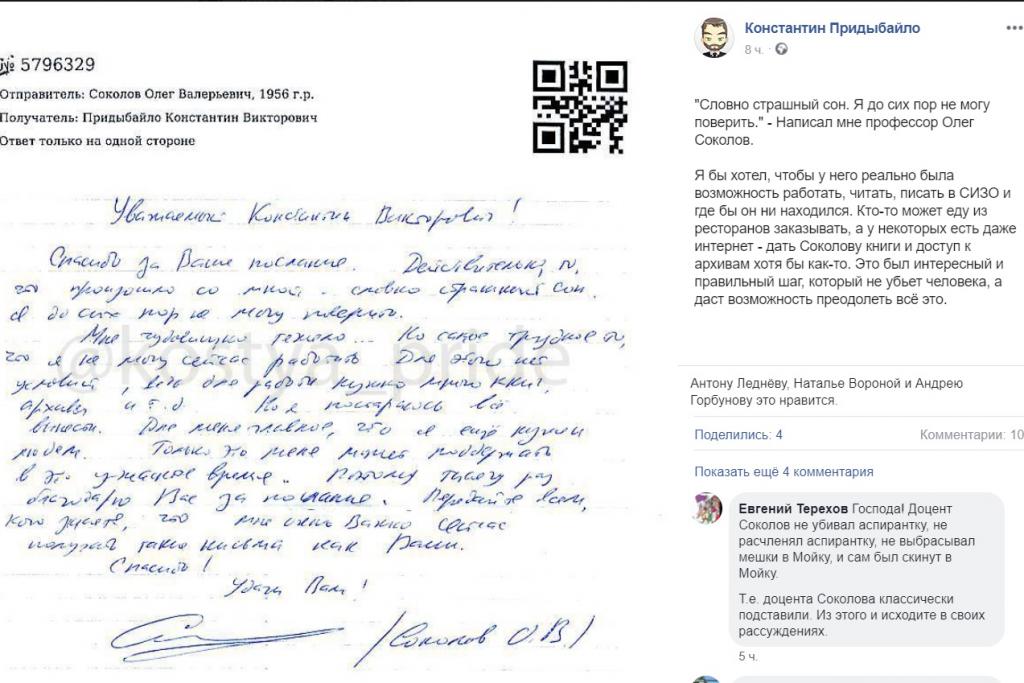 № 5796329
Отправитель: Соколов Олег Валерьевич, 1956 г.р.
Получатель: Придыбайло Константин Викторович
Ответ только на одной стороне
Уважаемый Константин Викторович!
Спасибо за Ваше послание. Действительно, то,
что произошло со мной - словно страшный сон.
Я до сих пор не могу поверить.
Мне чудовищно тяжело... Но самое трудное то,
что я не могу сейчас работать. Для этого нет
условий, ведь для работы нужно много книг,
архивы и т.д. Но я постараюсь всё
вынести. Для меня главное, что я ещё нужен
людям. Только это меня может поддержать
в это ужасное время. Поэтому тысячу раз
благодарю Вас за послание. Передайте всем,
кого знаете, что мне очень важно сейчас
получать такие письма как Ваши.
Спасибо!
Удачи Вам!
/Соколов О.В./
@kostya_pride
Константин Придыбайло
8 ч. ·
"Словно страшный сон. Я до сих пор не могу
поверить." - Написал мне профессор Олег
Соколов.
Я бы хотел, чтобы у него реально была
возможность работать, читать, писать в СИЗО и
где бы он ни находился. Кто-то может еду из
ресторанов заказывать, а у некоторых есть даже
интернет - дать Соколову книги и доступ к
архивам хотя бы как-то. Это был интересный и
правильный шаг, который не убьет человека, а
даст возможность преодолеть всё это.
Антону Леднёву, Наталье Вороной и Андрею
Горбунову это нравится.
Поделились: 4
Комментарии: 10
Показать ещё 4 комментария
Евгений Терехов Господа! Доцент
Соколов не убивал аспирантку, не
расчленял аспирантку, не выбрасывал
мешки в Мойку, и сам был скинут в
Мойку.
Т.е. доцента Соколова классически
подставили. Из этого и исходите в своих
рассуждениях.
5 ч.